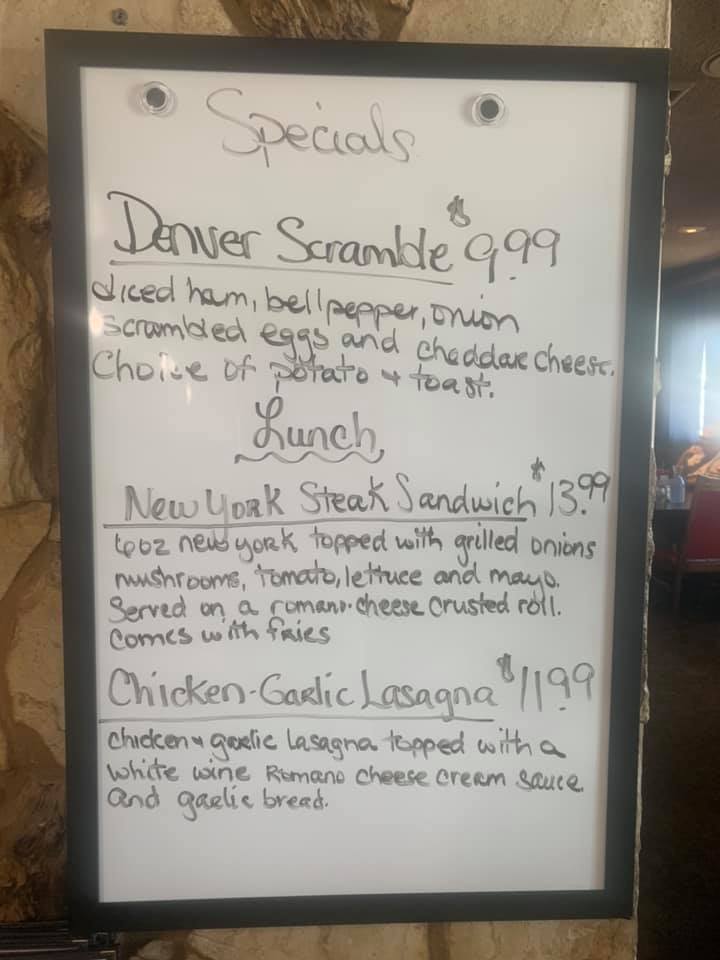 Specials
Denver Scramble $9.99
diced ham, bell pepper, onion
scrambled eggs and cheddar cheese.
Choice of potato & toast.
Lunch
New York Steak Sandwich $13.99
6oz new york topped with grilled onions
mushrooms, tomato, lettuce and mayo.
Served on a romano-cheese crusted roll.
comes with fries
Chicken-Garlic Lasagna $11.99
chicken & garlic lasagna topped with a
white wine Romano cheese cream sauce
and garlic bread.